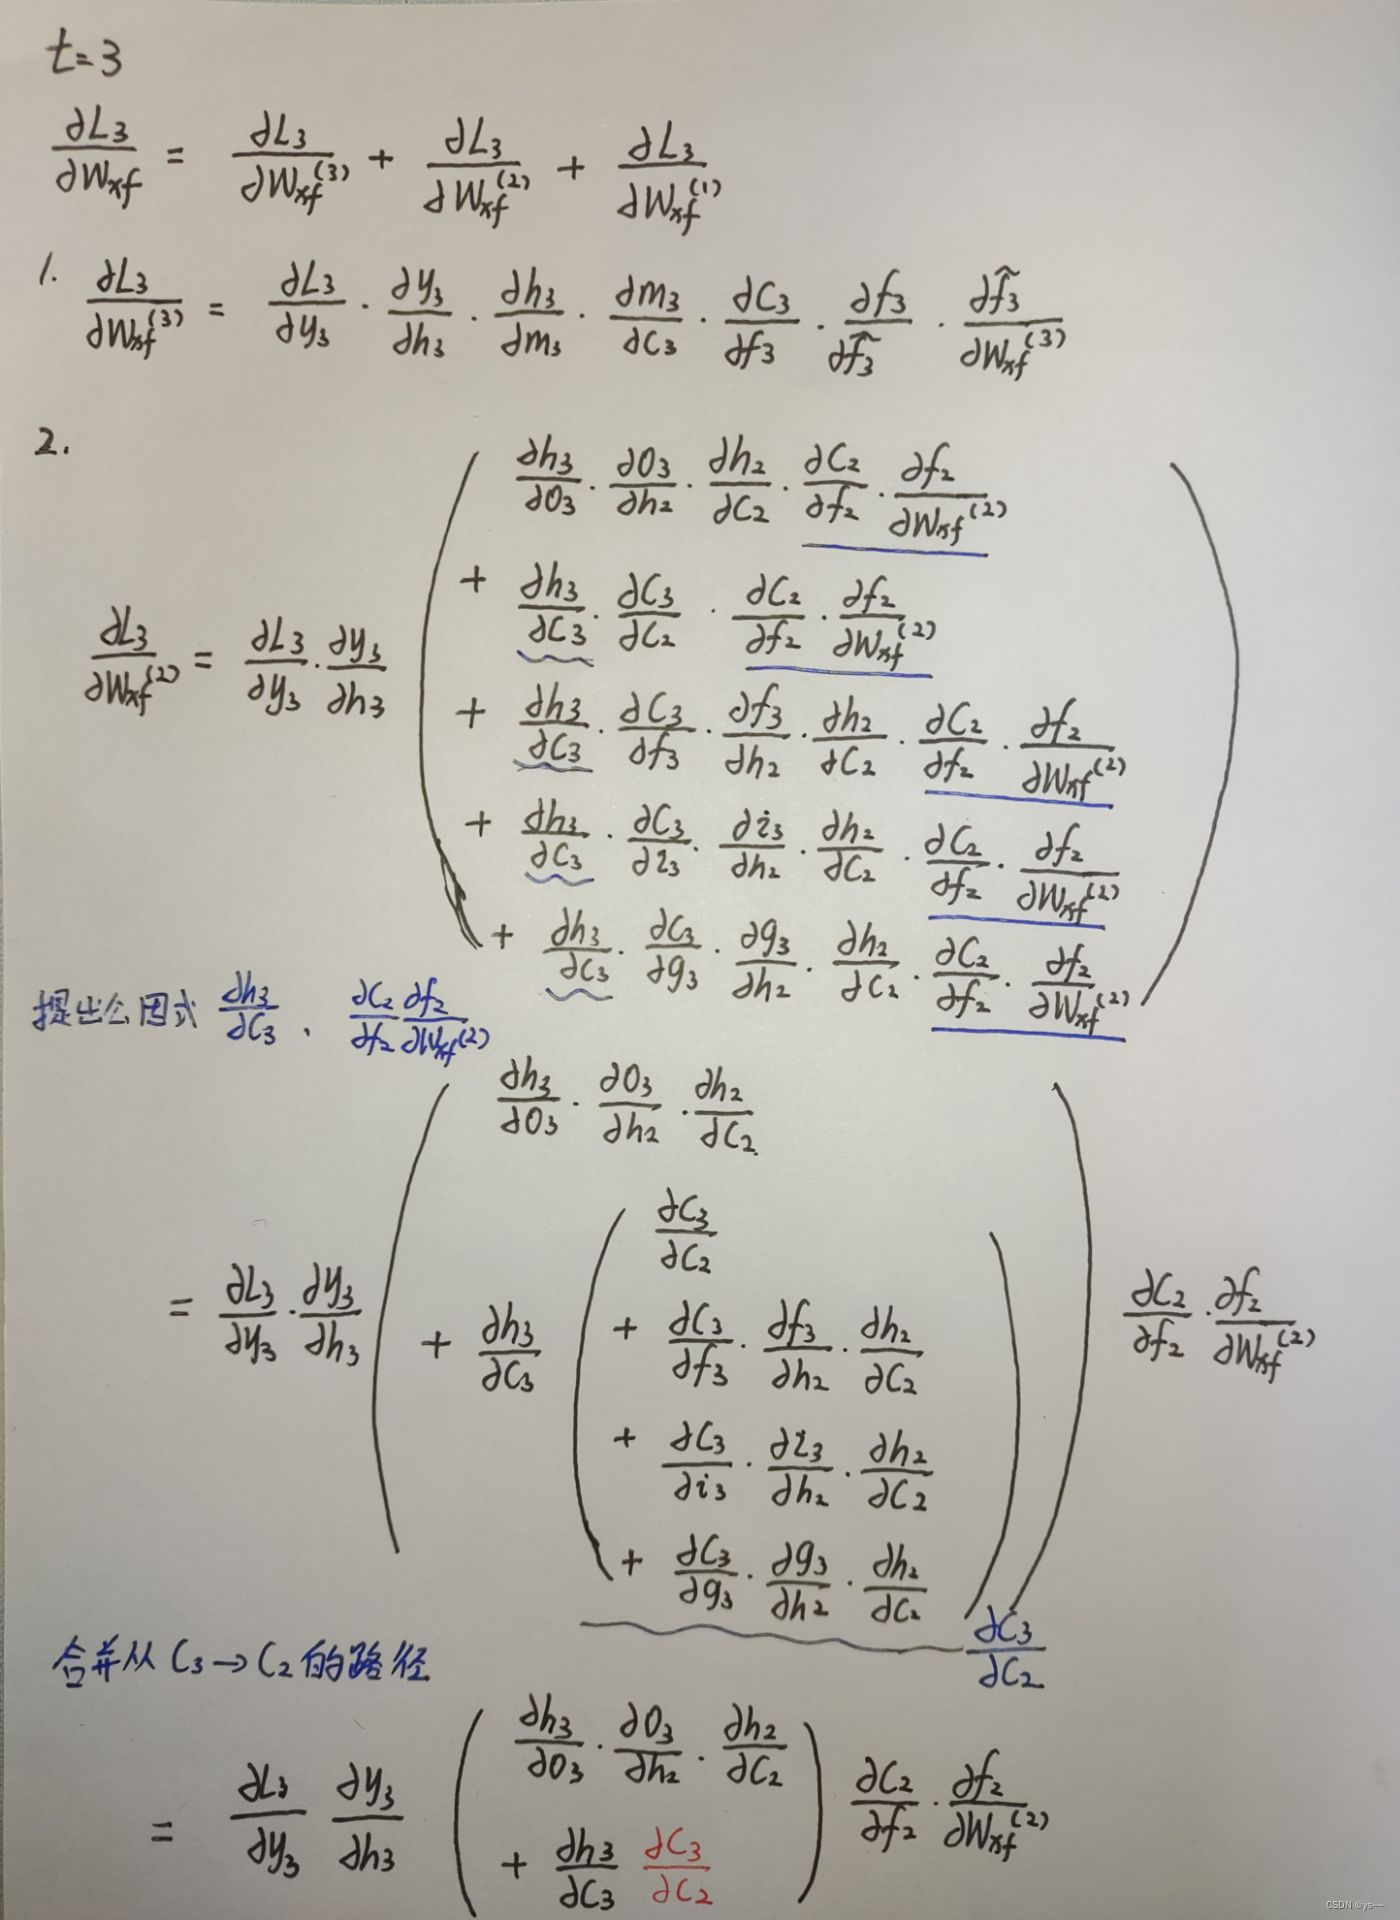 t=3
∂L₃/∂Wxf = ∂L₃/∂Wxf⁽³⁾ + ∂L₃/∂Wxf⁽²⁾ + ∂L₃/∂Wxf⁽¹⁾
1. ∂L₃/∂Wxf⁽³⁾ = ∂L₃/∂y₃ · ∂y₃/∂h₃ · ∂h₃/∂m₃ · ∂m₃/∂C₃ · ∂C₃/∂f₃ · ∂f₃/∂f̂₃ · ∂f̂₃/∂Wxf⁽³⁾
2.
∂L₃/∂Wxf⁽²⁾ = ∂L₃/∂y₃ · ∂y₃/∂h₃ ( ∂h₃/∂O₃ · ∂O₃/∂h₂ · ∂h₂/∂C₂ · ∂C₂/∂f₂ · ∂f₂/∂Wxf⁽²⁾
+ ∂h₃/∂C₃ · ∂C₃/∂C₂ · ∂C₂/∂f₂ · ∂f₂/∂Wxf⁽²⁾
+ ∂h₃/∂C₃ · ∂C₃/∂f₃ · ∂f₃/∂h₂ · ∂h₂/∂C₂ · ∂C₂/∂f₂ · ∂f₂/∂Wxf⁽²⁾
+ ∂h₃/∂C₃ · ∂C₃/∂i₃ · ∂i₃/∂h₂ · ∂h₂/∂C₂ · ∂C₂/∂f₂ · ∂f₂/∂Wxf⁽²⁾
+ ∂h₃/∂C₃ · ∂C₃/∂g₃ · ∂g₃/∂h₂ · ∂h₂/∂C₂ · ∂C₂/∂f₂ · ∂f₂/∂Wxf⁽²⁾ )
提出公因式 ∂h₃/∂C₃ 、 ∂C₂/∂f₂ ∂f₂/∂Wxf⁽²⁾
= ∂L₃/∂y₃ · ∂y₃/∂h₃ ( ∂h₃/∂O₃ · ∂O₃/∂h₂ · ∂h₂/∂C₂
+ ∂h₃/∂C₃ ( ∂C₃/∂C₂
+ ∂C₃/∂f₃ · ∂f₃/∂h₂ · ∂h₂/∂C₂
+ ∂C₃/∂i₃ · ∂i₃/∂h₂ · ∂h₂/∂C₂
+ ∂C₃/∂g₃ · ∂g₃/∂h₂ · ∂h₂/∂C₂ ) ) ∂C₂/∂f₂ · ∂f₂/∂Wxf⁽²⁾
∂C₃/∂C₂
合并从 C₃→C₂ 的路径
= ∂L₃/∂y₃ ∂y₃/∂h₃ ( ∂h₃/∂O₃ · ∂O₃/∂h₂ · ∂h₂/∂C₂
+ ∂h₃/∂C₃ ∂C₃/∂C₂ ) ∂C₂/∂f₂ · ∂f₂/∂Wxf⁽²⁾
CSDN @ys~~